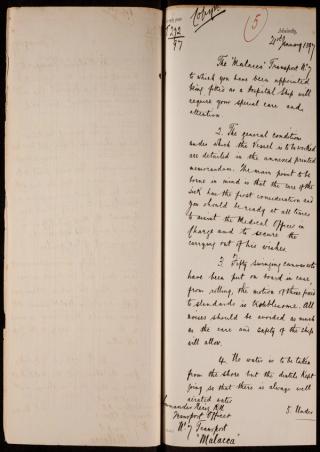 Copy.
5
232
97
Admiralty,
21st January 1897
The "Malacca" Transport No 7
to which you have been appointed
being fitted as a Hospital Ship will
require your special care and
attention
2. The general conditions
under which the Vessel is to be worked
are detailed in the annexed printed
memorandum. The main point to be
borne in mind is that the care of the
sick has the first consideration and
you should be ready at all times
to assist the Medical Officer in
Charge and to secure the
carrying out of his wishes
3. Fifty swinging canvas cots
have been put on board in case,
from rolling, the motion of those fixed
to standards is troublesome. All
noises should be avoided as much
as the care and safety of the ship
will allow.
4. No water is to be taken
from the shore but the distils kept
going so that there is always well
aerated water
5. Under
Commander RN
Transport Officer
No 7 Transport
"Malacca"